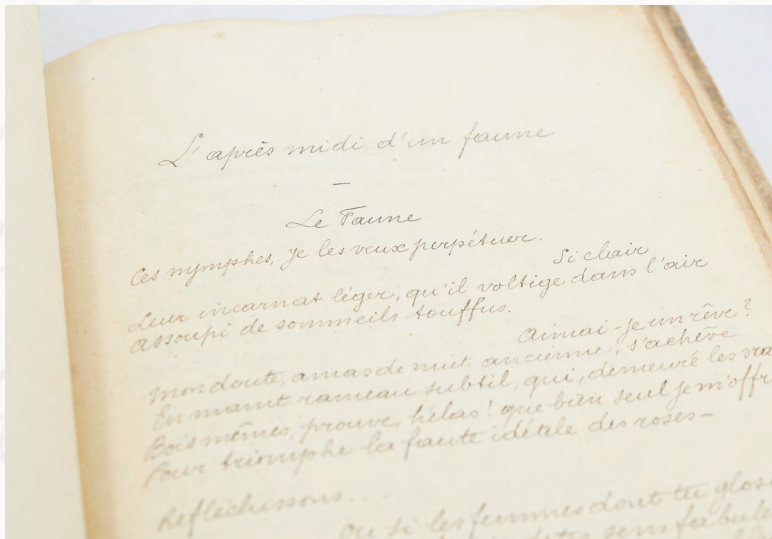 L'après midi d'un faune
—
Le Faune
Ces nymphes, je les veux perpétuer.
Si clair
Leur incarnat léger, qu'il voltige dans l'air
assoupi de sommeils touffus.
Aimai-je un rêve?
Mon doute, amas de nuit ancienne, s'achève
En maint rameau subtil, qui, demeuré les vrais
Bois mêmes, prouve, hélas! que bien seul je m'offr
Pour triomphe la faute idéale des roses—
Réfléchissons...
ou si les femmes dont tu glos
sens fabule